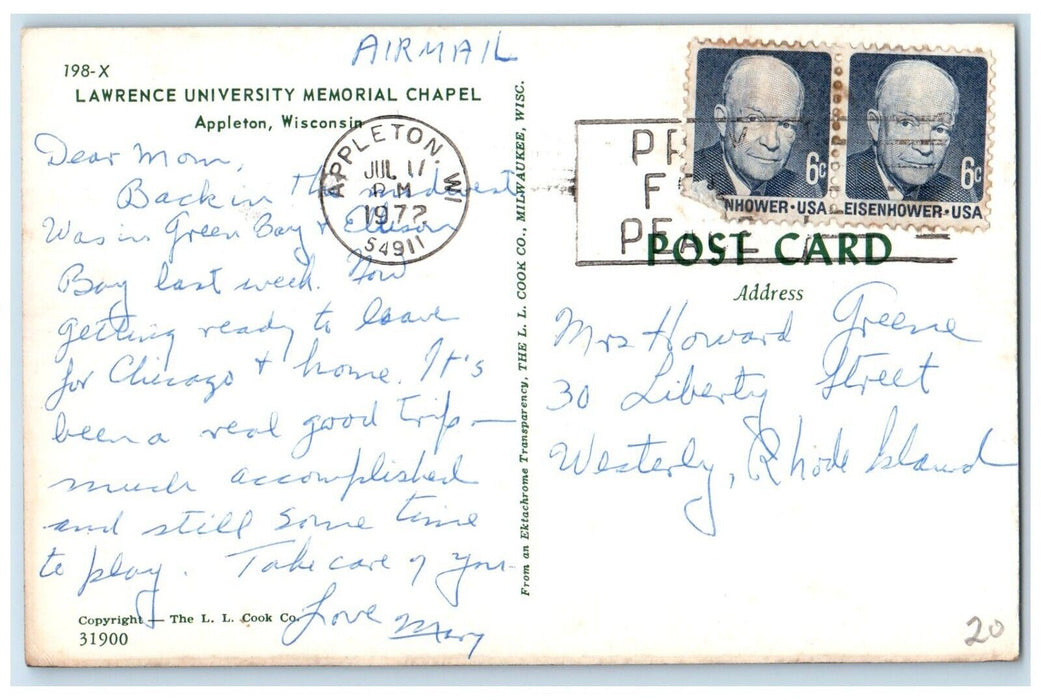 AIRMAIL
198-X
LAWRENCE UNIVERSITY MEMORIAL CHAPEL
Appleton, Wisconsin
APPLETON, WI
JUL 11
PM
1972
54911
Dear Mom,
Back in the midwest
Was in Green Bay + Ellison
Bay last week. Now
getting ready to leave
for Chicago + home. It's
been a real good trip —
much accomplished
and still some time
to play. Take care of you -
Love Mary
Copyright — The L. L. Cook Co.
31900
From an Ektachrome Transparency, THE L. L. COOK CO., MILWAUKEE, WISC.
6c 6c
NHOWER·USA EISENHOWER·USA
POST CARD
Address
Mrs Howard Greene
30 Liberty Street
Westerly, Rhode Island
20